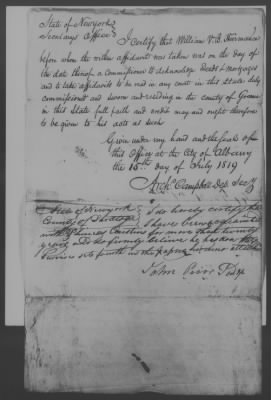 State of New York
Secretarys Office
I certify that William V. B.
before whom the within affidavit was taken was on the day of
the date thereof a commissioner to acknowledge Deeds & mortgages
and to take affidavits to be read in any court in this State duly
commissioned and sworn and residing in the county of Greene
in this State full faith and credit may and ought therefore
to be given to his acts as such
Given under my hand and the seal of
this Office at the City of Albany
the 15th day of July 1819
Campbell Dep Secy
State of New York
County of I do hereby certify that
I have been acquainted
with for more than twenty
years & do firmly believe he
Services sets fourth in the papers
John